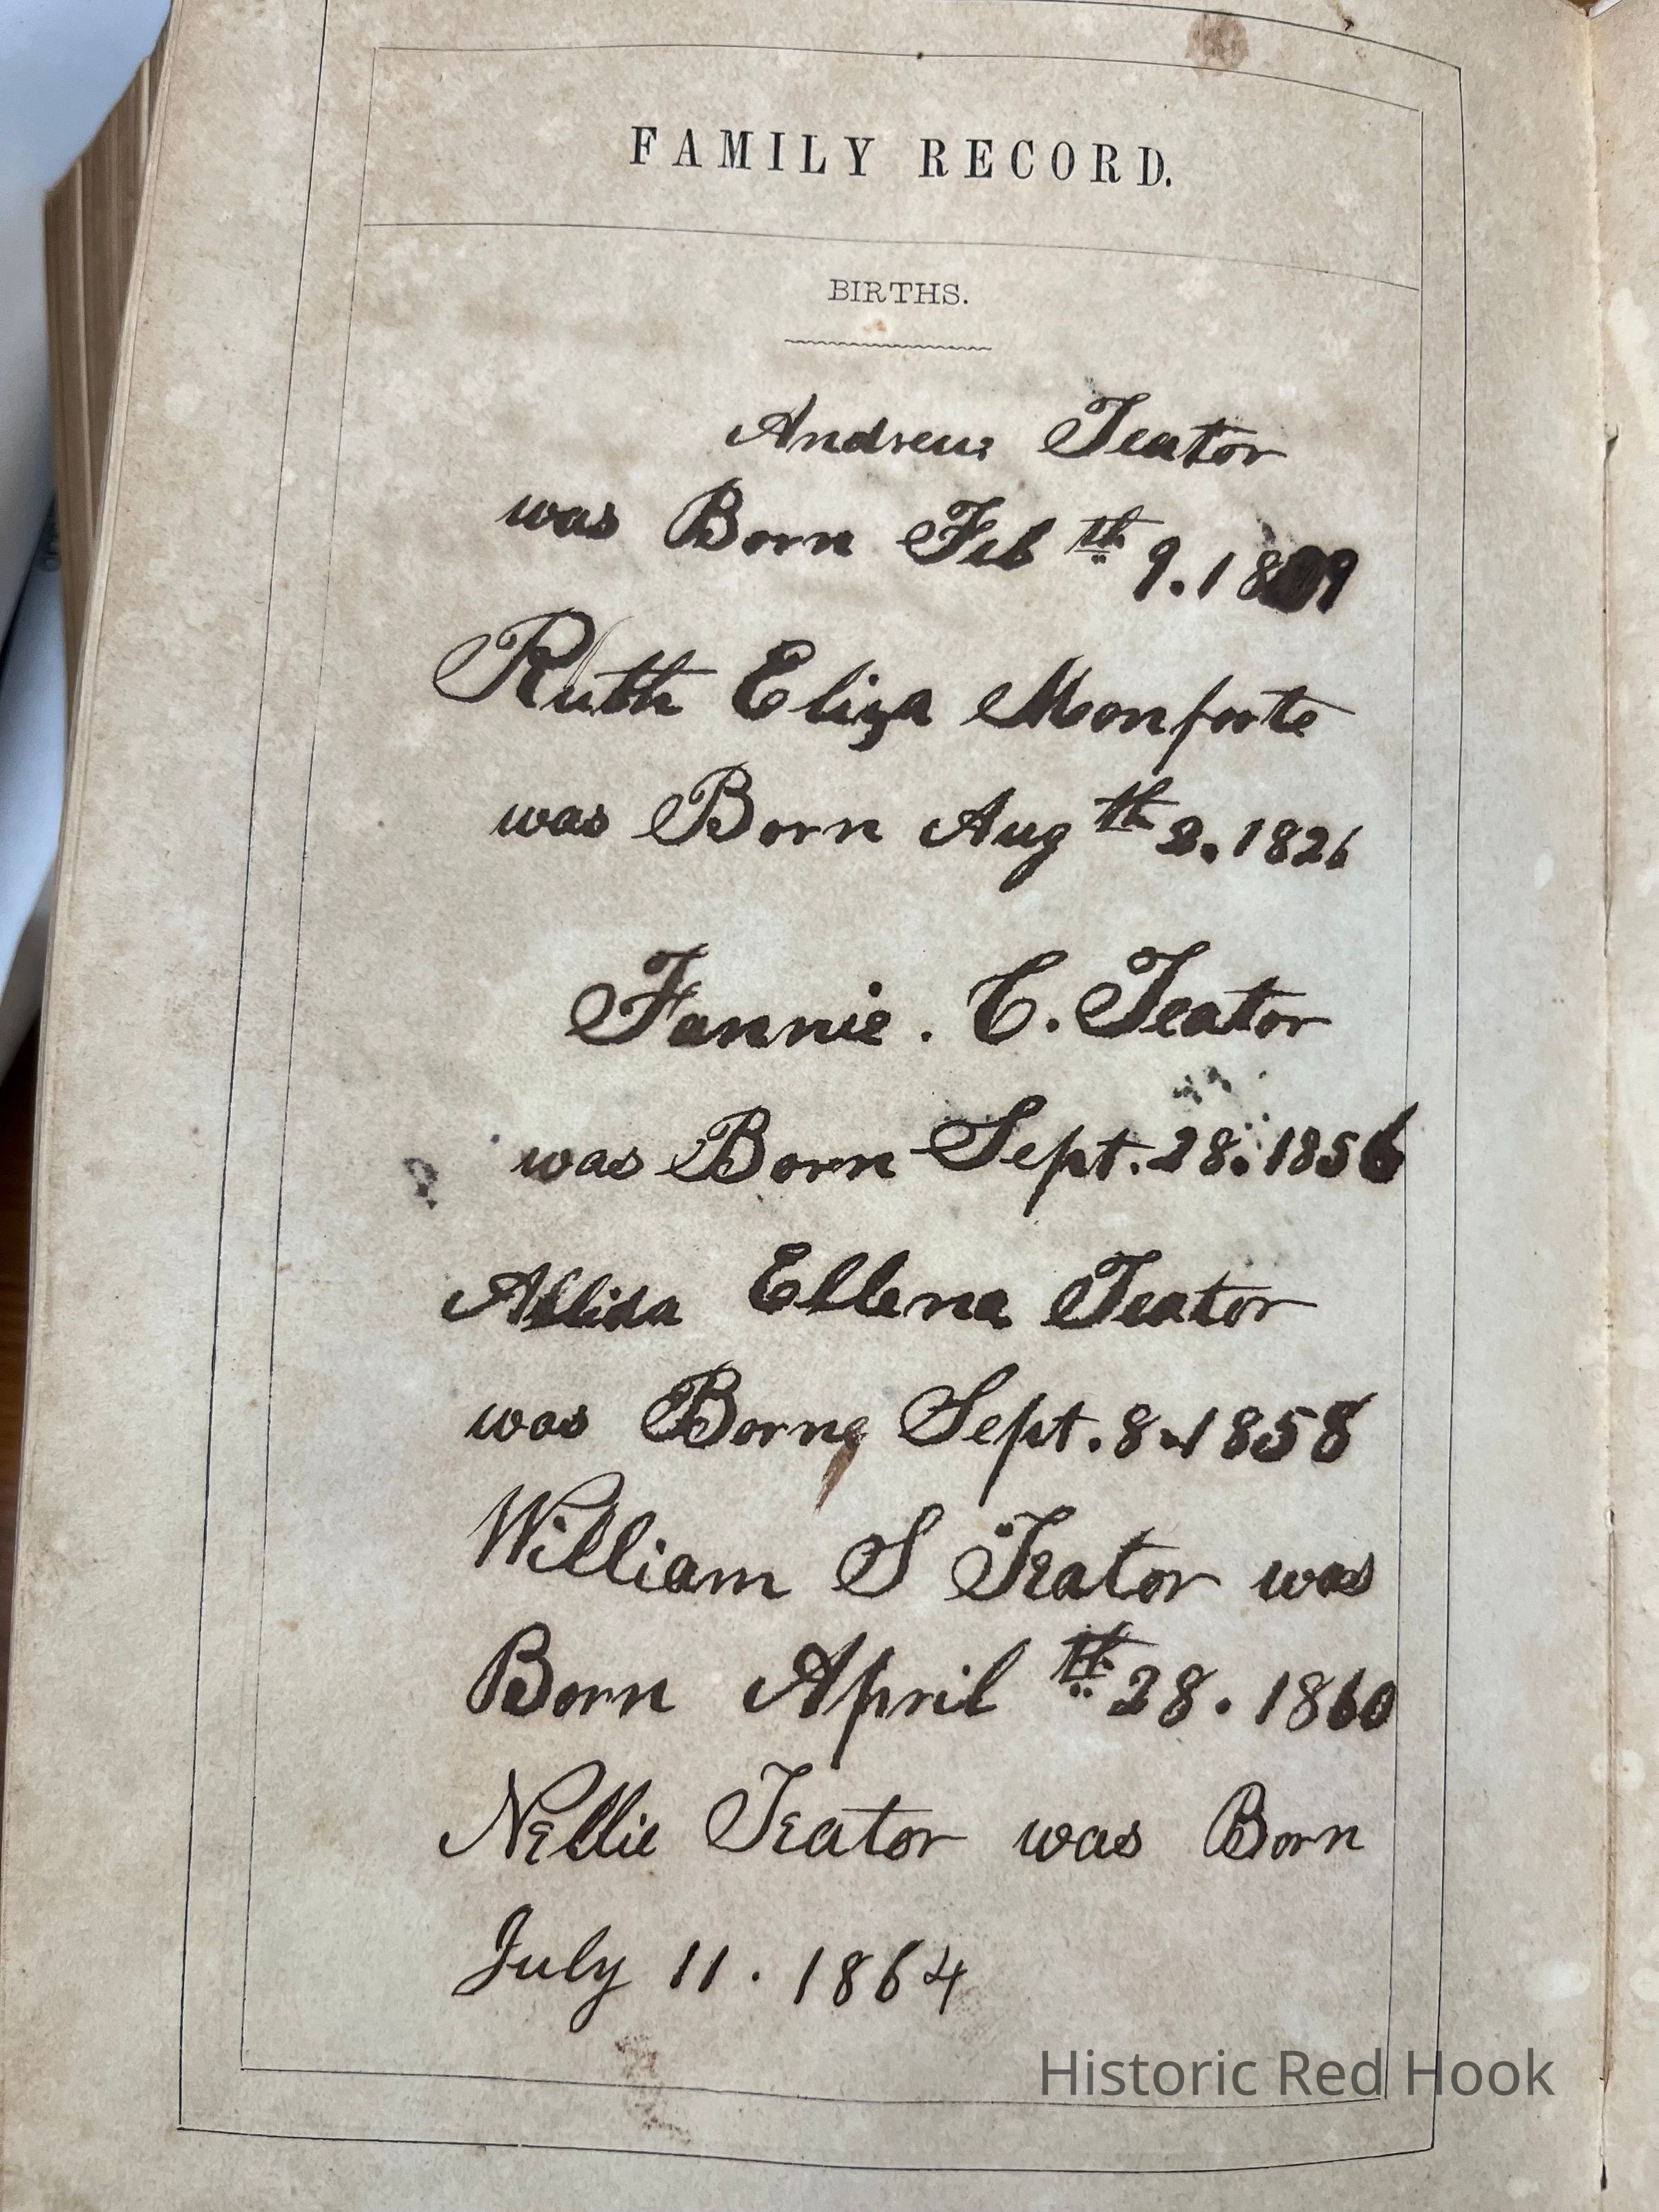 FAMILY RECORD.
BIRTHS.
Andrew Teator
was Born Feb th 9. 1809
Ruth Eliza Monforte
was Born Aug th 2. 1826
Fannie. C. Teator
was Born Sept. 28. 1856
Allida Ellena Teator
was Borne Sept. 8. 1858
William S Teator was
Born April th 28. 1860
Nellie Teator was Born
July 11. 1864
Historic Red Hook